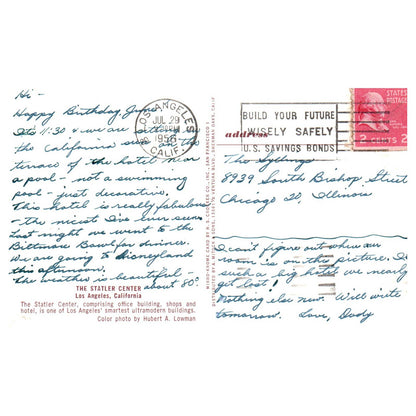 Hi -
Happy Birthday June
Its 11:30 & we are sitting in
the California sun on the
terrace of the hotel near
a pool - not a swimming
pool - just decorative.
This hotel is really fabulous
- the nicest I've ever seen.
Last night we went to the
Biltmore Bowl for dinner.
We are going to Disneyland
this afternoon.
The weather is beautiful -
about 80°
THE STATLER CENTER
Los Angeles, California
The Statler Center, comprising office building, shops and
hotel, is one of Los Angeles' smartest ultramodern buildings.
Color photo by Hubert A. Lowman
LOS ANGELES
JUL 29
1956
CALIF.
BUILD YOUR FUTURE
WISELY SAFELY
U.S. SAVINGS BONDS
UNITED STATES
POSTAGE
2 CENTS 2
address
The Sydlings
8939 South Bishop Street
Chicago 20, Illinois
I can't figure out where our
room is on the picture. It's
such a big hotel we nearly
get lost!
Nothing else new. Will write
tomorrow. Love, Dody